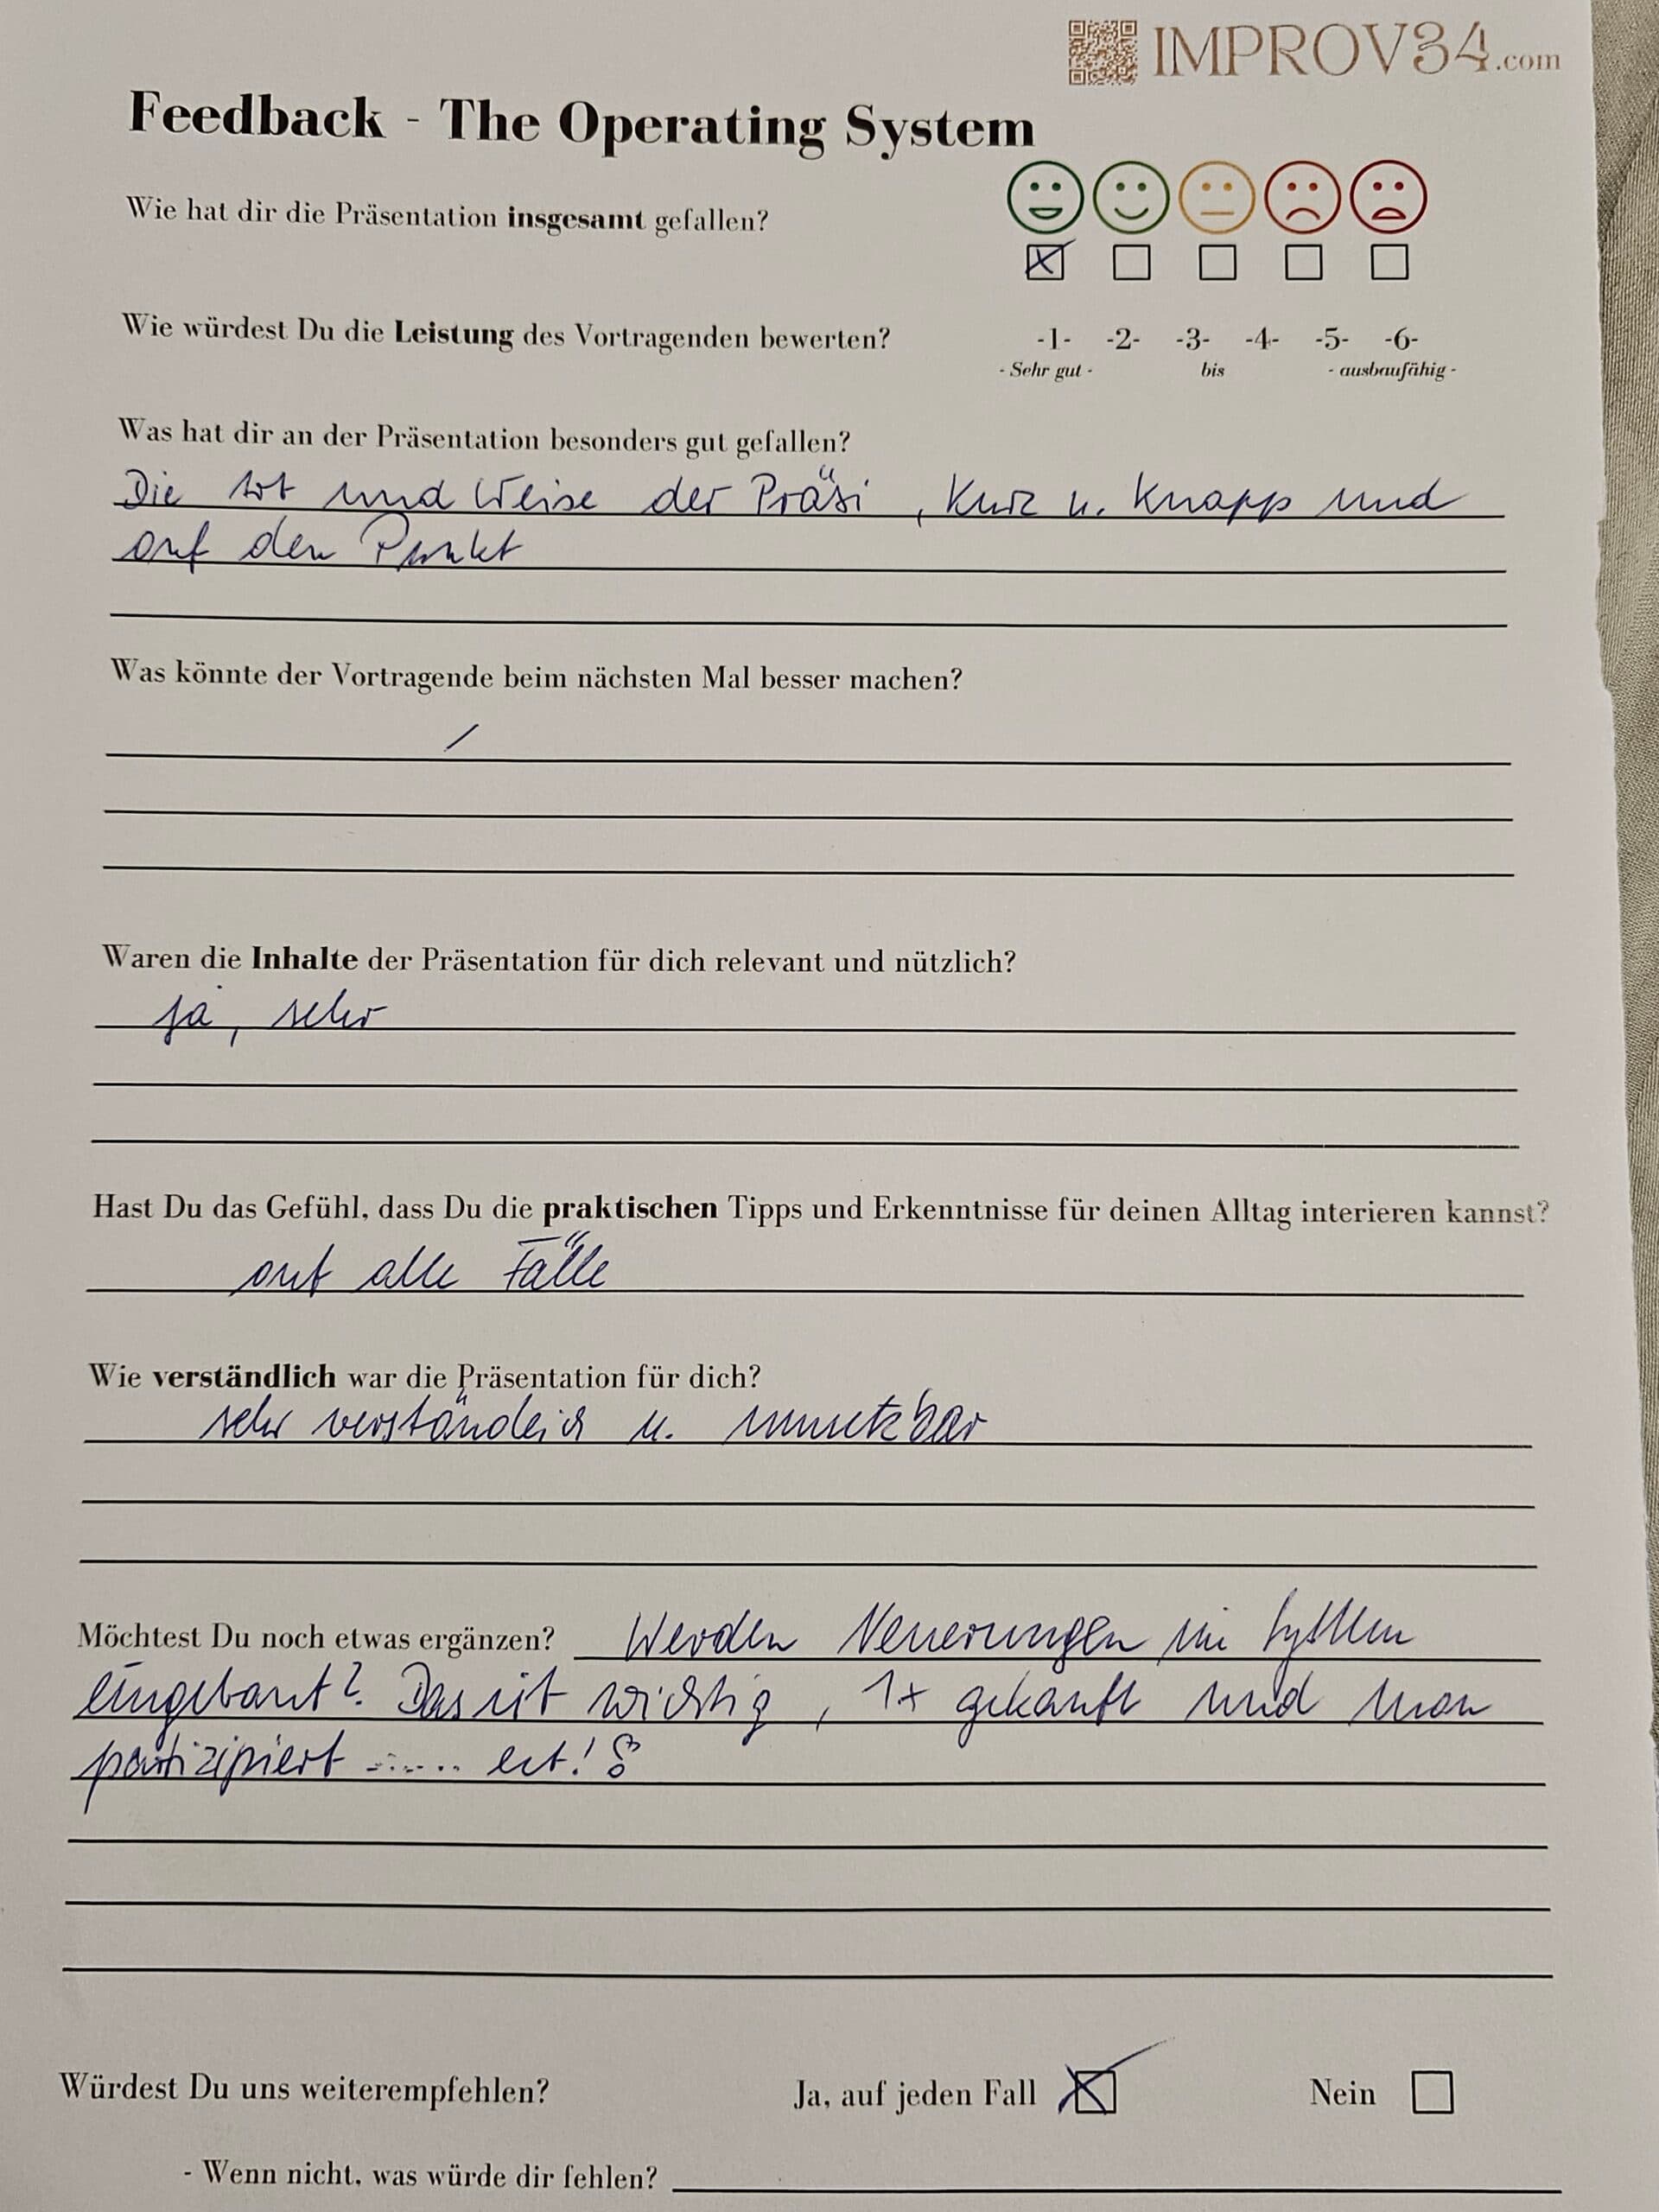 IMPROV34.com
Feedback - The Operating System
Wie hat dir die Präsentation insgesamt gefallen?
Wie würdest Du die Leistung des Vortragenden bewerten? -1- -2- -3- -4- -5- -6-
- Sehr gut - bis - ausbaufähig -
Was hat dir an der Präsentation besonders gut gefallen?
Die Art und Weise der Präsi, kurz u. knapp und
auf den Punkt
Was könnte der Vortragende beim nächsten Mal besser machen?
/
Waren die Inhalte der Präsentation für dich relevant und nützlich?
ja, sehr
Hast Du das Gefühl, dass Du die praktischen Tipps und Erkenntnisse für deinen Alltag interieren kannst?
auf alle Fälle
Wie verständlich war die Präsentation für dich?
sehr verständlich u. umsetzbar
Möchtest Du noch etwas ergänzen? Werden Neuerungen im System
eingebaut? Das ist wichtig, 1x gekauft und man
partizipiert ...... ect!
Würdest Du uns weiterempfehlen? Ja, auf jeden Fall Nein
- Wenn nicht, was würde dir fehlen?